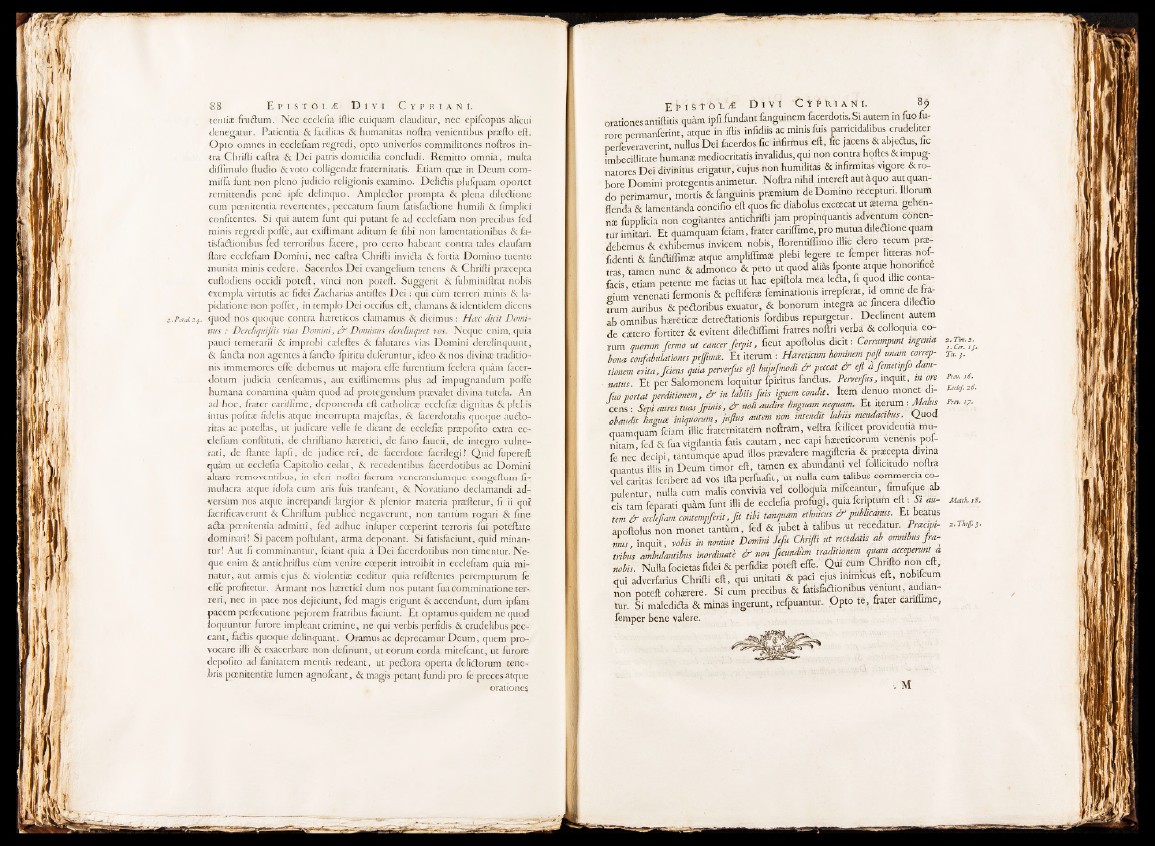 88 EPISTOLÆ DIVI CYPRIANI.
tentiæ fructum. Nec ecclesia istic cuiquam clauditur, nec episcopus alicui
denegatur. Patientia & facilitas & humanitas nostra venientibus præsto est.
Opto omnes in ecclesiam regredi, opto universos commilitones nostros in-
tra Christi castra & Dei patris domicilia concludi. Remitto omnia, multa
dissimulo studio & voto colligendæ fraternitatis. Etiam quæ in Deum com-
missa sunt non pleno judicio religionis examino. Delictis plusquam oportet
remittendis penè ipse delinquo. Amplector prompta & plena dilectione
cum pœnitentia revertentes, peccatum suum satisfactione humili & simplici
confitentes. Si qui autem sunt qui putant se ad ecclesiam non precibus sed
minis regredi posse, aut existimant aditum se sibi non lamentationibus & sa-
tisfactionibus sed terroribus facere, pro certo habeant contra tales clausam
stare ecclesiam Domini, nec castra Christi invicta & fortia Domino tuente
munita minis cedere. Sacerdos Dei evangelium tenens & Christi præcepta
custodiens occidi potest, vinci non potest. Suggerit & subministrat nobis
exempla virtutis ac fidei Zacharias antistes Dei: qui cùm terreri minis & la-
pidatione non posset, in templo Dei occisus est, clamans & identidem dicens
2. Paral. 24. quod nos quoque contra hæreticos clamamus & dicimus: Hæc dicit Domi-
nus: Dereliquistis vias Domini, & Dominus derelinquet vos. Neque enim, quia
pauci temerarii & improbi cælestes & salutares vias Domini derelinquunt,
& sancta non agentes à sancto spiritu deseruntur, ideo & nos divinæ traditio-
nis immemores esse debemus ut majora esse furentium scelera quàm sacer-
dotum judicia censeamus, aut existimemus plus ad impugnandum posse
humana conamina quàm quod ad protegendum prævalet divina tutela. An
ad hoc, frater carissime, deponenda est catholicæ ecclesiæ dignitas & plebis
intus positæ fidelis atque incorrupta majestas, & sacerdotalis quoque aucto-
ritas ac potestas, ut judicare velle se dicant de ecclesiæ præposito extra ec-
clesiam constituti, de christiano hæretici, de sano saucii, de integro vulne-
rati, de stante lapsi, de judice rei, de sacerdote sacrilegi? Quid superest
quàm ut ecclesia Capitolio cedat, & recedentibus sacerdotibus ac Domini
altare removentibus, in cleri nostri sacrum venerandumque congestum si-
mulacra atque idola cum aris suis transeant, & Novatiano declamandi ad-
versùm nos atque increpandi largior & plenior materia præstetur, si ii qui
sacrificaverunt & Christum publicè negaverunt, non tantùm rogari & sine
acta pœnitentia admitti, sed adhuc insuper cœperint terroris sui potestate
dominari? Si pacem postulant, arma deponant. Si satisfaciunt, quid minan-
tur? Aut si comminantur, sciant quia à Dei sacerdotibus non timentur. Ne-
que enim & antichristus cùm venire cœperit introibit in ecclesiam quia mi-
natur, aut armis ejus & violentiæ ceditur quia resistentes perempturum se
esse profitetur. Armant nos hæretici dum nos putant sua comminatione ter-
reri, nec in pace nos dejiciunt, sed magis erigunt & accendunt, dum ipsam
pacem persecutione pejorem fratribus faciunt. Et optamus quidem ne quod
loquuntur furore impleant crimine, ne qui verbis perfidis & crudelibus pec-
cant, factis quoque delinquant. Oramus ac deprecamur Deum, quem pro-
vocare illi & exacerbare non desinunt, ut eorum corda mitescant, ut furore
deposito ad sanitatem mentis redeant, ut pectora operta delictorum tene-
bris pœnitentiæ lumen agnoscant, & magis petant fundi pro se preces atque
orationes
EPISTOLÆ DIVI CYPRIANI. 89
orationes antistitis quàm ipsi fundant sanguinem sacerdotis. Si autem in suo fu-
rore permanserint, atque in istis insidiis ac minis suis parricidalibus crudeliter
perseveraverint, nullus Dei sacerdos sic infirmus est, sic jacens & abjectus, sic
imbecillitate humanæ mediocritatis invalidus, qui non contra hostes & impug-
natores Dei divinitus erigatur, cujus non humilitas & infirmitas vigore & ro-
bore Domini protegentis animetur. Nostra nihil interest aut à quo aut quan-
do perimamur, mortis & sanguinis præmium de Domino recepturi. Illorum
flenda & lamentanda concisio est quos sic diabolus excæcat ut æterna gehen-
næ supplicia non cogitantes antichristi jam propinquantis adventum conen-
tur imitari. Et quamquam sciam, frater carissime, pro mutua dilectione quam
debemus & exhibemus invicem nobis, florentissimo illic clero tecum præ-
sidenti & sanctissimæ atque amplissimæ plebi legere te semper litteras nos-
tras, tamen nunc & admoneo & peto ut quod aliàs sponte atque honorificè
facis, etiam petente me facias ut hac epistola mea lecta, si quod illic conta-
gium venenati sermonis & pestiferæ seminationis irrepserat, id omne de fra-
trum auribus & pectoribus exuatur, & bonorum integra ac sincera dilectio
ab omnibus hæreticæ detrectationis sordibus repurgetur. Declinent autem
de cætero fortiter & evitent dilectissimi fratres nostri verba & colloquia eo-
rum quorum sermo ut cancer serpit, sicut apostolus dicit: Corrumpunt ingenia 2. Tim. 2.
bona confabulationes pessimæ. Et iterum: Hæreticum hominem post unam correp- 1. Cor. 15.
tionem evita, sciens quia perversus est hujusmodi & peccat & est à semetipso dam- Tit. 3.
natus. Et per Salomonem loquitur spiritus sanctus. Perversus, inquit, in ore Prov. 16.
suo portat perditionem, & in labiis suis ignem condit. Item denuo monet di- Eccles. 26.
cens: Sepi aures tuas spinis, & noli audire linguam nequam. Et iterum: Malus Prov. 17.
obaudit linguæ iniquorum, justus autem non intendit labiis mendacibus. Quod
quamquam sciam illic fraternitatem nostram, vestra scilicet providentia mu-
nitam, sed & sua vigilantia satis cautam, nec capi hæreticorum venenis pos-
se nec decipi, tantumque apud illos prævalere magisteria & præcepta divina
quantus illis in Deum timor est, tamen ex abundanti vel sollicitudo nostra
vel caritas scribere ad vos ista persuasit, ut nulla cum talibus commercia co-
pulentur, nulla cum malis convivia vel colloquia misceantur, simusque ab
eis tam separati quàm sunt illi de ecclesia profugi, quia scriptum est: Si au- Math. 18.
tem & ecclesiam contempserit, sit tibi tanquam ethnicus & publicanus. Et beatus
apostolus non monet tantùm, sed & jubet à talibus ut recedatur. Præcipi- 2. Thess. 3.
mus, inquit, vobis in nomine Domini Jesu Christi ut recedatis ab omnibus fra-
tribus ambulantibus inordinatè & non secundùm traditionem quam acceperunt à
nobis. Nulla societas fidei & perfidiæ potest esse. Qui cum Christo non est,
qui adversarius Christi est, qui unitati & paci ejus inimicus est, nobiscum
non potest cohærere. Si cum precibus & satisfactionibus veniunt, audian-
tur. Si maledicta & minas ingerunt, respuantur. Opto te, frater carissime,
semper bene valere.
M